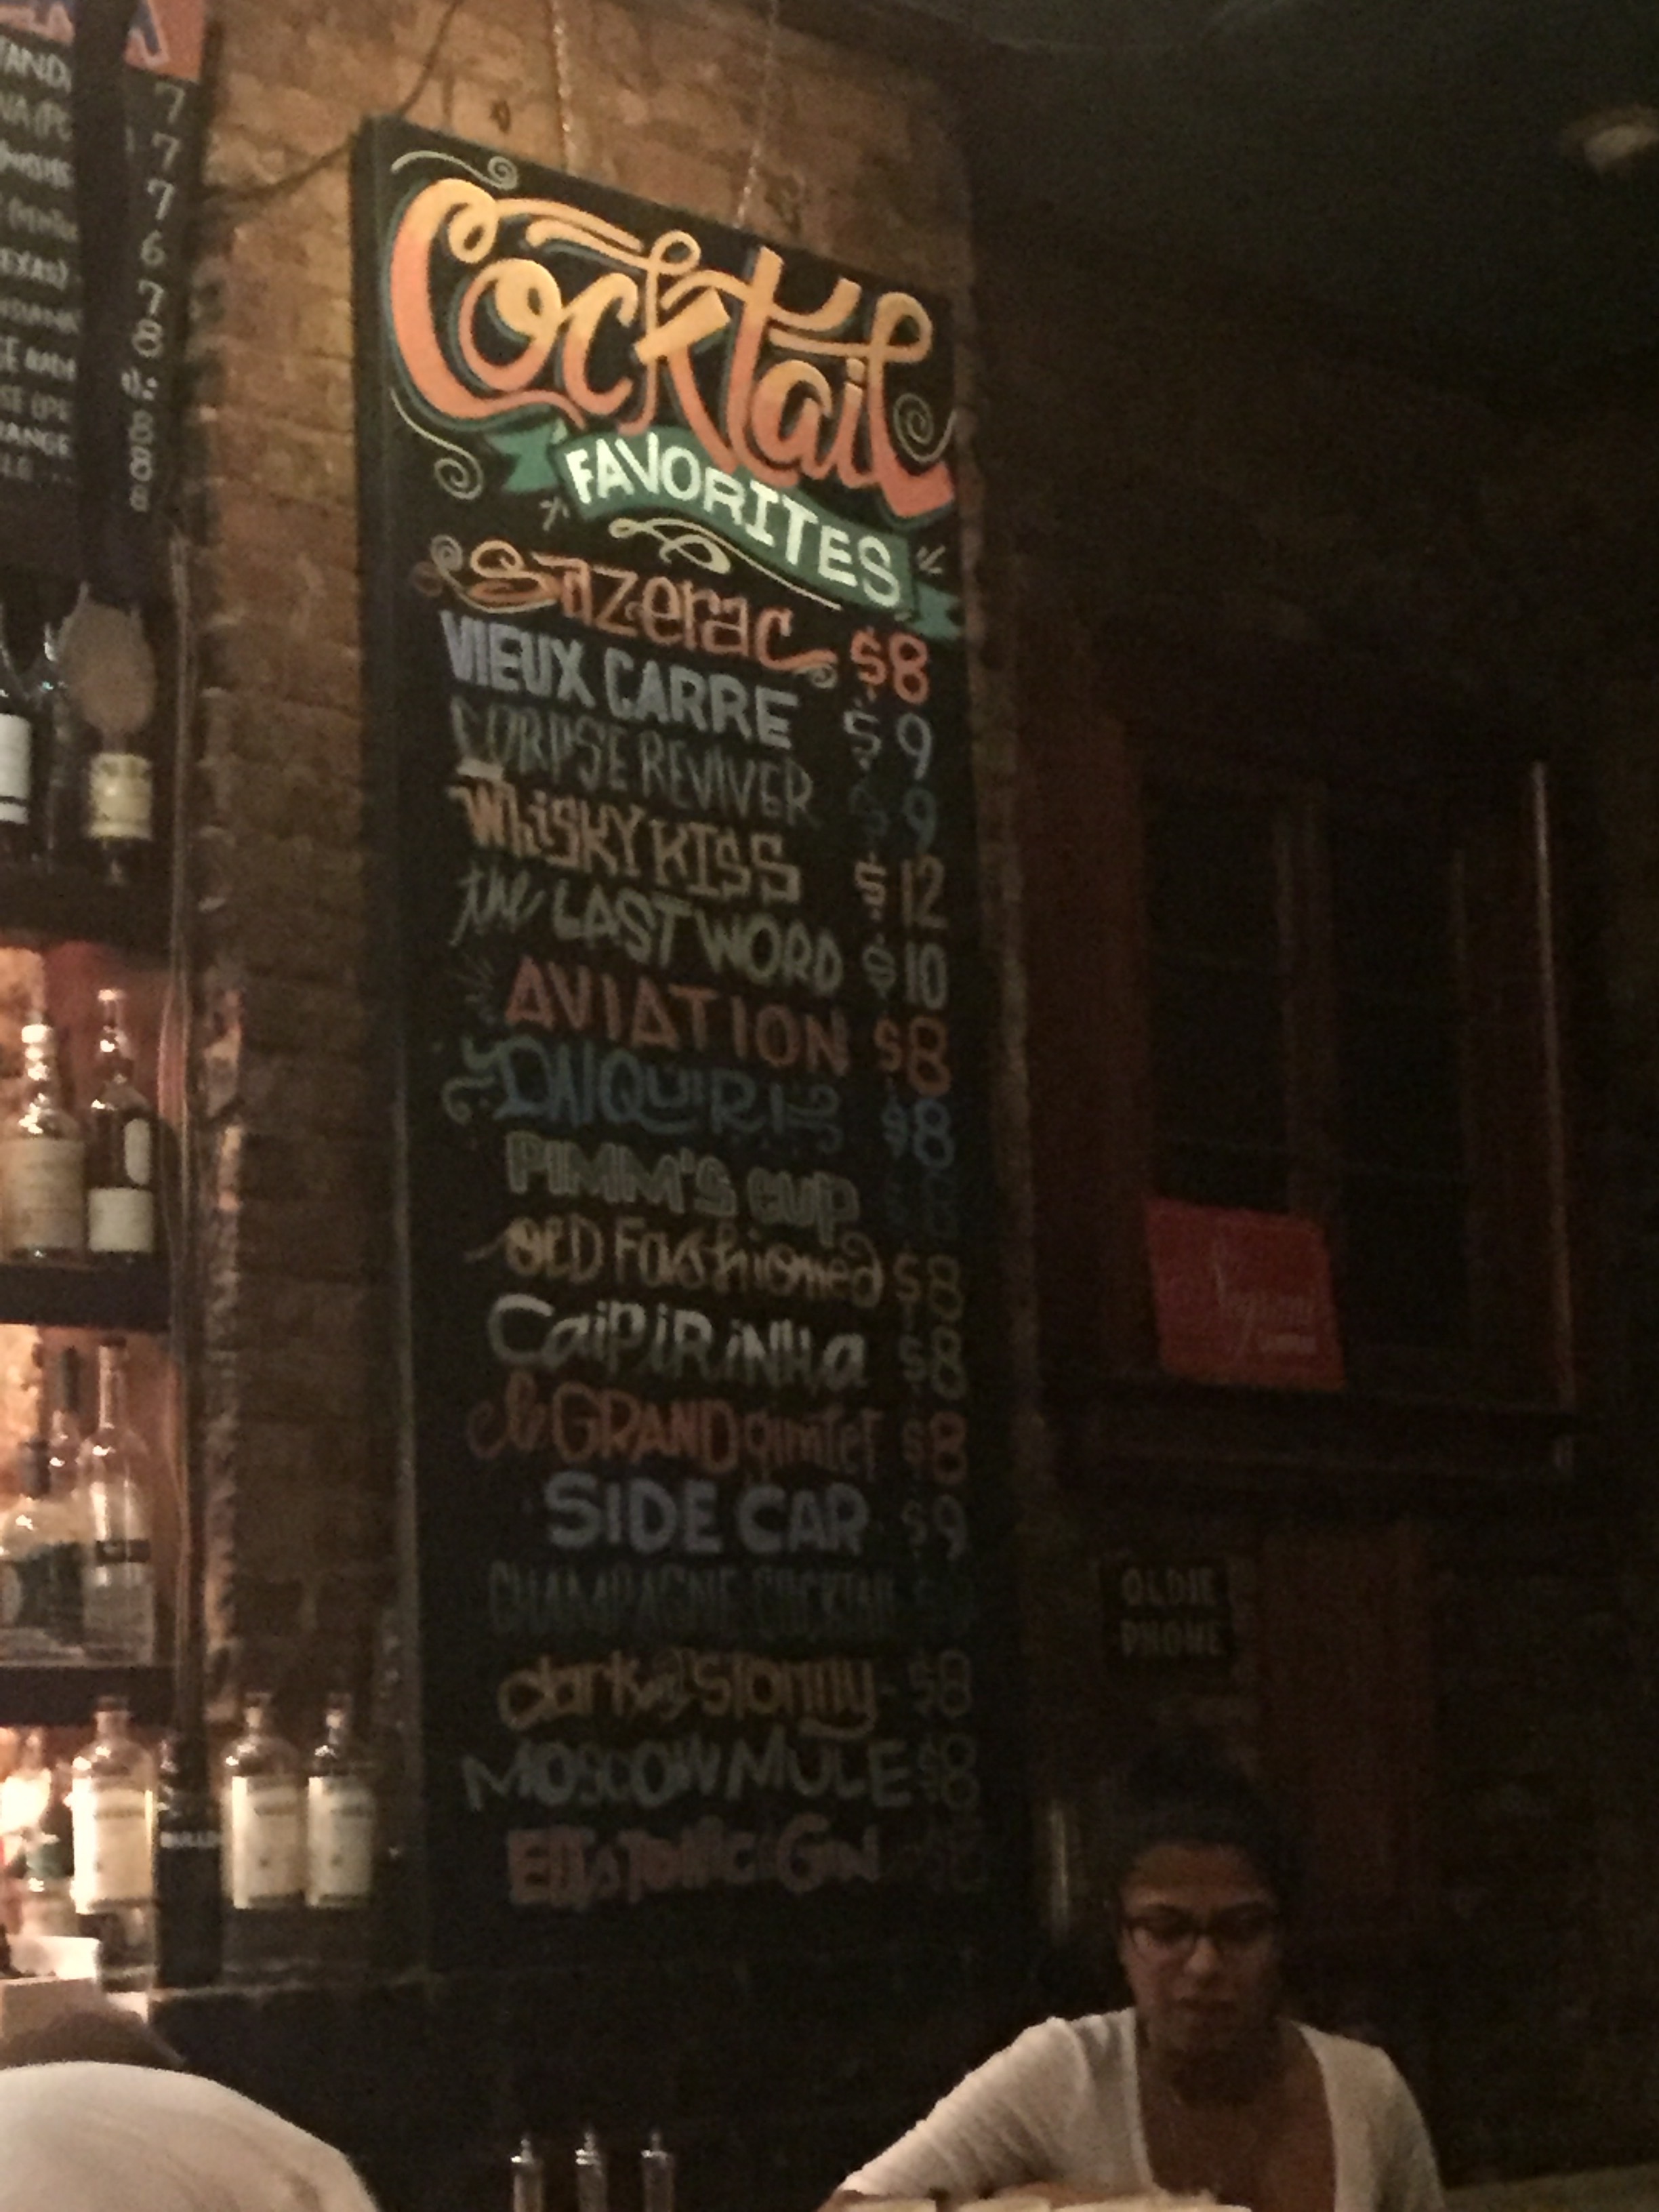 Cocktail
FAVORITES
Sazerac $8
VIEUX CARRE $9
CORPSE REVIVER $9
WHiSKY KISS $12
the LAST WORD $10
AVIATION $8
DAIQUIRI $8
PIMM'S CUP
OLD Fashioned $8
CaiPiRiNHa $8
le GRAND gimlet $8
SIDE CAR $9
CHAMPAGNE COCKTAIL
dark and STORMY $8
MOSCOW MULE $8
TONIC GIN
7
7
7
6
7
8
8
8
RANGE
OLDIE
PHONE